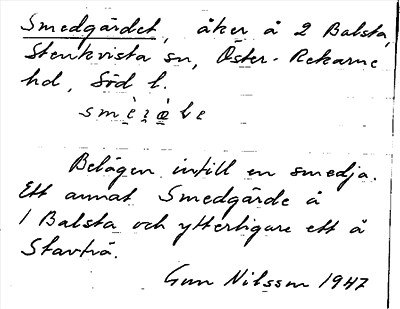 Smedgärdet, åker å 2 Balsta,
Stenkvista sn, Öster-Rekarne
hd, Söd l.
Belägen intill en smedja.
Ett annat Smedgärde å
1 Balsta och ytterligare ett å
Stavtrå.
Gun Nilsson 1947